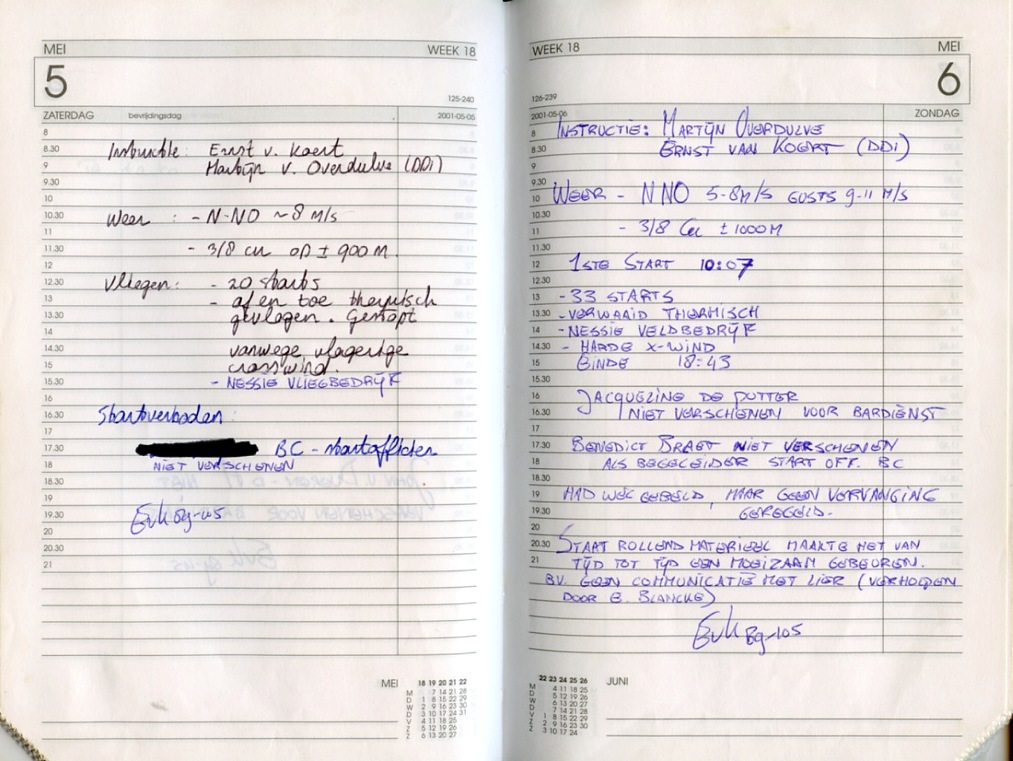 MEI WEEK 18
5
125-240
ZATERDAG bevrijdingsdag 2001-05-05
8
8.30 Instructie: Ernst v. Koert
9 Martijn v. Overdulve (DDI)
9.30
10
10.30 Weer : - N-NO ~8 M/s
11
11.30 - 3/8 cu op ± 900 M.
12
12.30 Vliegen: - 20 starts
13 - af en toe thermisch
13.30 gevlogen. Gestopt
14
14.30 vanwege vlagerige
15 crosswind.
15.30 - NESSIE VLIEGBEDRIJF
16
16.30 Startverboden:
17
17.30 BC - startofficier
18 NIET VERSCHENEN
18.30
19
19.30 EvK Bg-105
20
20.30
21
MEI 18 19 20 21 22
M 7 14 21 28
D 1 8 15 22 29
W 2 9 16 23 30
D 3 10 17 24 31
V 4 11 18 25
Z 5 12 19 26
Z 6 13 20 27
WEEK 18 MEI
6
126-239
2001-05-06 ZONDAG
8 INSTRUCTIE: MARTIJN OVERDULVE
8.30 ERNST VAN KOERT (DDI)
9
9.30
10 WEER - NNO 5-8 M/S GUSTS 9-11 M/S
10.30
11 - 3/8 Cu ± 1000 M
11.30
12 1STE START 10:07
12.30
13 - 33 STARTS
13.30 - VERWAAID THERMISCH
14 - NESSIE VELDBEDRIJF
14.30 - HARDE X-WIND
15 EINDE 18:43
15.30
16 JACQUELINE DE PUTTER
16.30 NIET VERSCHENEN VOOR BARDIENST
17
17.30 BENEDICT BRAET NIET VERSCHENEN
18 ALS BEGELEIDER START OFF. BC
18.30
19 HAD WEL GEBELD, MAAR GEEN VERVANGING
19.30 GEREGELD.
20
20.30 STAAT ROLLEND MATERIEEL MAAKTE HET VAN
21 TIJD TOT TIJD EEN MOEIZAAM GEBEUREN.
BV. GEEN COMMUNICATIE MET LIER (VERHOLPEN
DOOR E. BLANCKE)
EvK Bg-105
22 23 24 25 26 JUNI
M 4 11 18 25
D 5 12 19 26
W 6 13 20 27
D 7 14 21 28
V 1 8 15 22 29
Z 2 9 16 23 30
Z 3 10 17 24